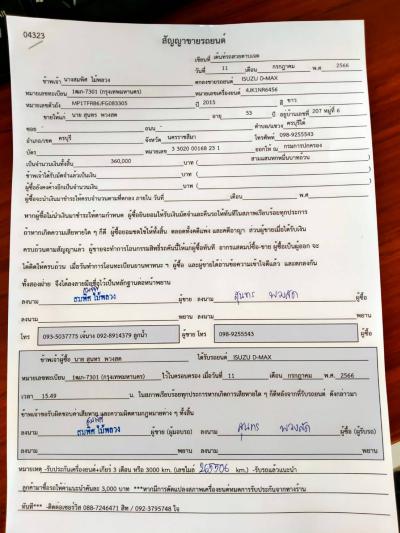 04323
สัญญาขายรถยนต์
เขียนที่ เต็นท์รถสวยตาบเจต
วันที่ 11 เดือน กรกฎาคม พ.ศ. 2566
ข้าพเจ้า นางสมพิศ ไม้พลวง ตกลงขายรถยนต์ ISUZU D-MAX
หมายเลขทะเบียน 1ฒก-7301 (กรุงเทพมหานคร) หมายเลขเครื่องยนต์ 4JK1NR6456
หมายเลขตัวถัง MP1TFR86JFG083305 ปี 2015 สี ขาว
ขายให้แก่ นาย สุนทร พวงสด อายุ 53 ปี อยู่บ้านเลขที่ 207 หมู่ที่ 6
ซอย - ถนน - ตำบล/แขวง ครบุรีใต้
อำเภอ/เขต ครบุรี จังหวัด นครราชสีมา โทรศัพท์ 098-9255543
บัตร หมายเลข 3 3020 00168 23 1 ออกให้ ณ กรมการปกครอง
เป็นจำนวนเงินทั้งสิ้น 360,000 บาท ( สามแสนหกหมื่นบาทถ้วน )
ข้าพเจ้าได้รับมัดจำแล้วเป็นเงิน บาท ( )
ผู้ซื้อยังคงค้างอีกเป็นจำนวนเงิน บาท ( )
ผู้ซื้อจะนำเงินมาชำระให้ครบจำนวนตามที่ตกลง ภายใน วันที่ เดือน พ.ศ.
หากผู้ซื้อไม่นำเงินมาชำระให้ตามกำหนด ผู้ซื้อยินยอมให้ริบเงินมัดจำและคืนรถให้ทันทีในสภาพเรียบร้อยทุกประการ
ถ้าหากเกิดความเสียหายใด ๆ ก็ดี ผู้ซื้อยอมชดใช้ให้ทั้งสิ้น ตลอดทั้งคดีแพ่ง และคดีอาญา ส่วนผู้ขายเมื่อได้รับเงิน
ครบถ้วนตามสัญญาแล้ว ผู้ขายจะทำการโอนกรรมสิทธิ์รถคันนี้ให้แก่ผู้ซื้อทันที
ทั้งสองฝ่าย จึงได้ลงลายมือชื่อไว้เป็นหลักฐานต่อหน้าพยาน
ลงนาม สมพิศ ไม้พลวง ผู้ขาย ลงนาม สุนทร พวงสด ผู้ซื้อ
ลงนาม พยาน ลงนาม พยาน
โทร 093-5037775 เจ๊นาง 092-8914379 ลูกน้ำ ผู้ขาย โทร 098-9255543 ผู้ซื้อ
ข้าพเจ้าผู้ซื้อ นาย สุนทร พวงสด ได้รับรถยนต์ ISUZU D-MAX
หมายเลขทะเบียน 1ฒก-7301 (กรุงเทพมหานคร) ไว้ในครอบครอง เมื่อวันที่ 11 เดือน กรกฎาคม พ.ศ. 2566
เวลา 15.49 น. ในสภาพเรียบร้อยทุกประการหากเกิดการเสียหายใด ๆ ก็ดีหลังจากที่รับรถยนต์ ดังกล่าวมา
ข้าพเจ้าขอรับผิดชอบค่าเสียหาย และความผิดตามกฎหมายต่าง ๆ ทั้งสิ้น
ลงนาม สมพิศ ไม้พลวง ผู้ขาย (ผู้มอบรถ) ลงนาม สุนทร พวงสด ผู้ซื้อ (ผู้รับรถ)
ลงนาม พยาน ลงนาม พยาน
หมายเหตุ -รับประกันเครื่องยนต์+เกียร์ 3 เดือน หรือ 3000 km. (เลขไมล์ 265506 km.) -รับรถแล้วแนะนำ
ลูกค้ามาซื้อรถให้ค่าแนะนำคันละ 3,000 บาท ***หากมีการดัดแปลงสภาพเครื่องยนต์หมดการรับประกันจากทางร้าน
ทันที*** -ติดต่อเซอร์วิส 088-7246471 สิท / 092-3795748 โจ